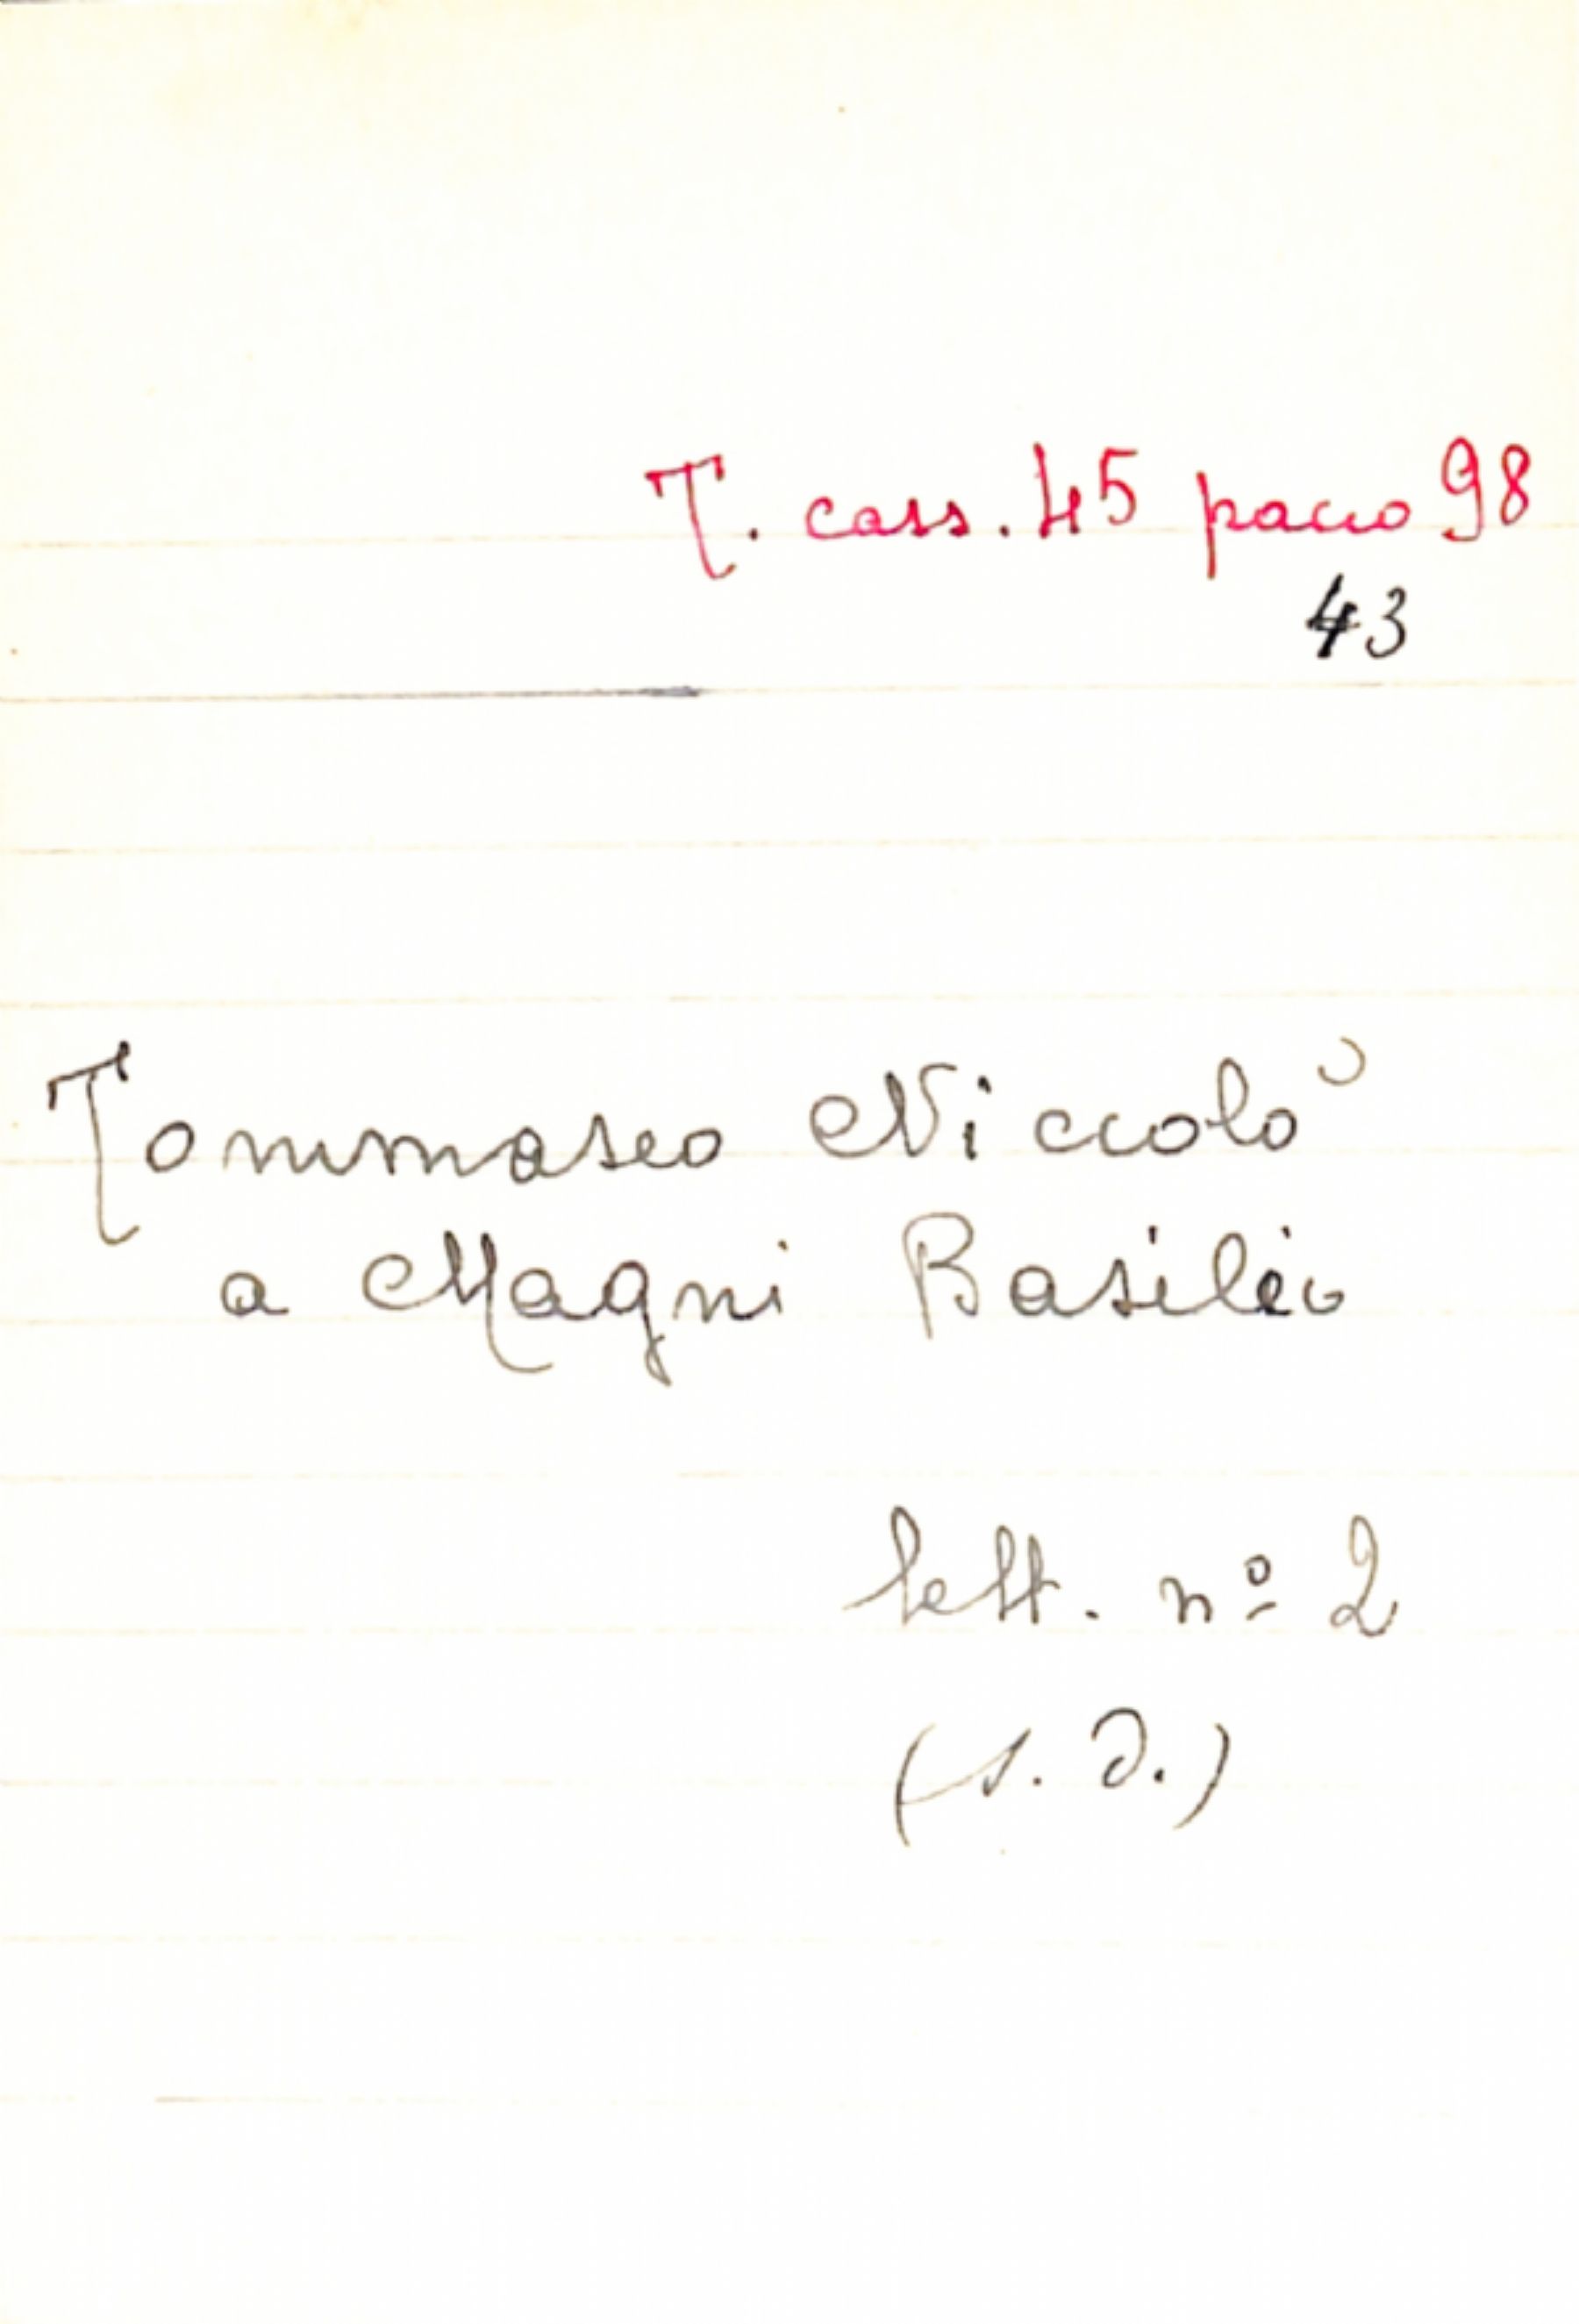 T. cass. 45 pacco 98
43
Tommaseo Niccolò
a Magni Basilio
lett. nº 2
(s. d.)